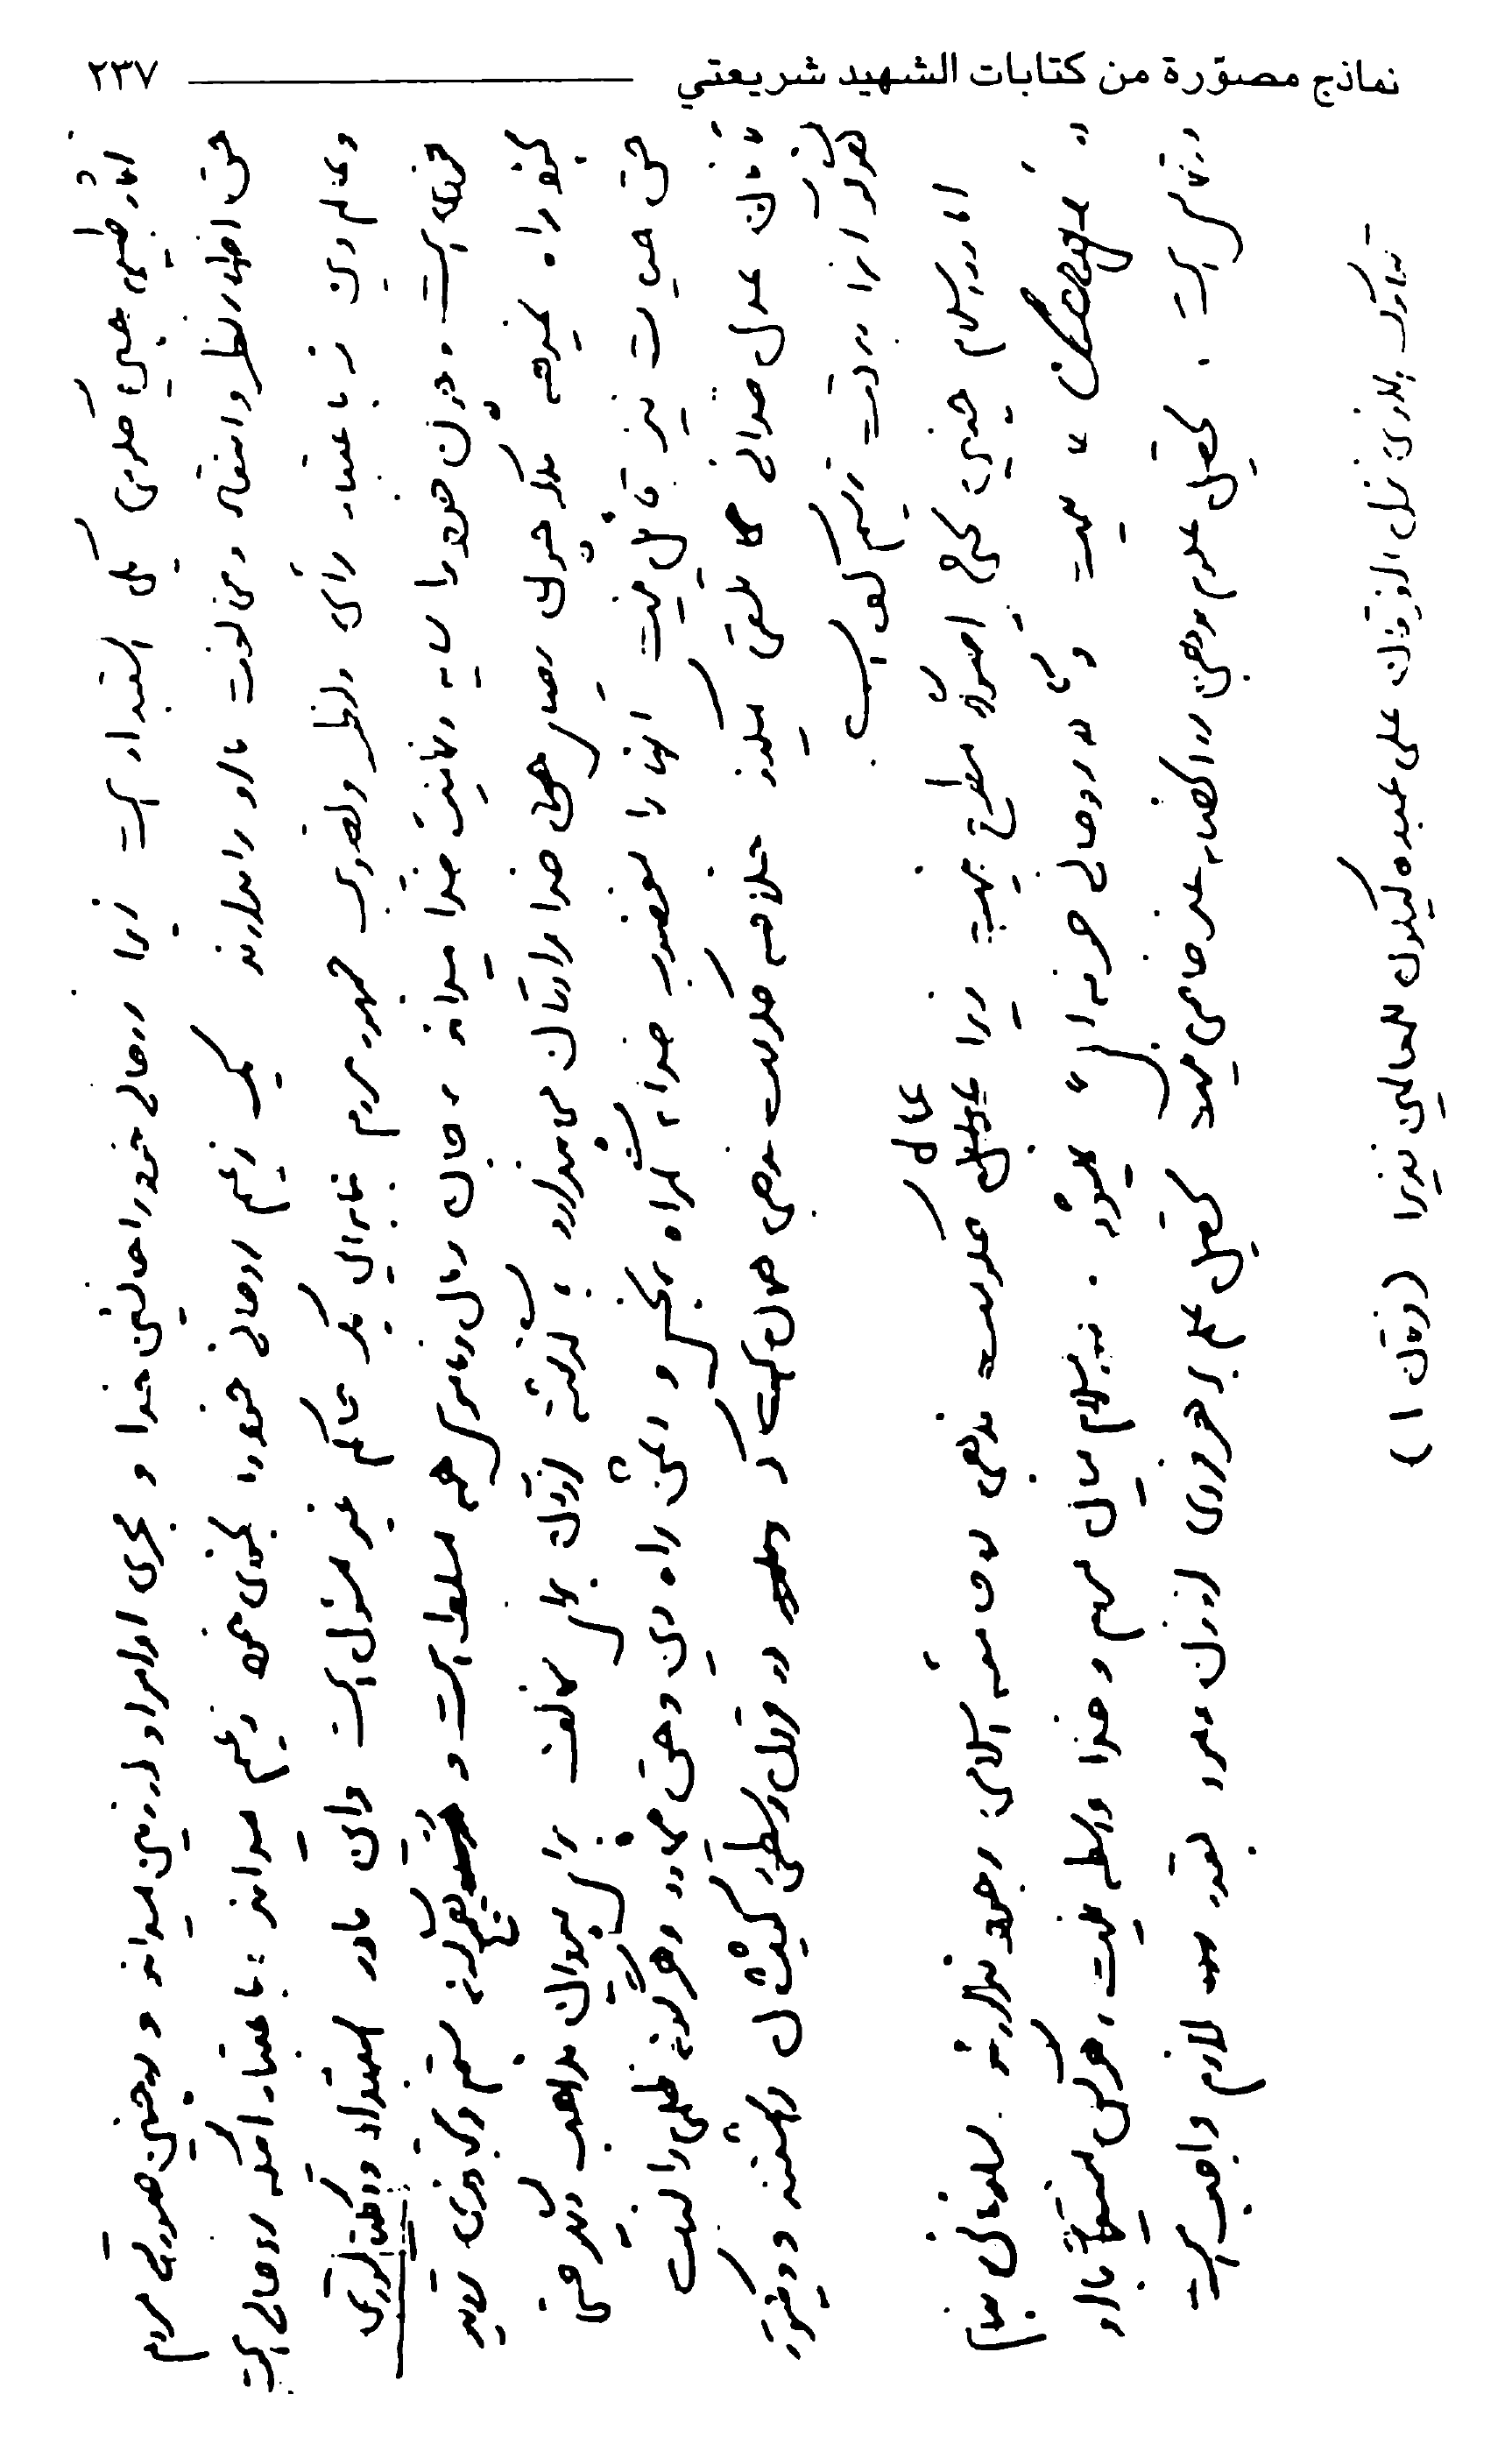 نماذج مصوّرة من كتابات الشهيد شريعتي ٢٣٧
آثار طبیعی چنین حکومتی یکی استبداد است زیرا روحانی خود را جانشین خدا و مجری اوامر او در زمین میداند و در چنین صورتی مردم
حق اظهار نظر و انتقاد و مخالفت با او را ندارند یک زعیم روحانی خود را بخودی خود زعیم میداند، باعتبار اینکه روحانی است
و عالم دین نه باعتبار رأی و نظر و تصویب جمهور مردم بنابراین یک حاکم غیر مسئول است و این مادر استبداد و دیکتاتوری
فردی است و چون خود را سایه و نماینده خدا میداند، بر جان و مال و ناموس همه مسلط است و هیچ گونه ستم و تجاوزی تردید
بخود راه نمیدهد بلکه رضای خدا را در آن می پندارد، گذشته از آن برای مخالف برای پیروان مذاهب دیگر حتی
حق حیات نیز قائل نیست آنها را مغضوب خدا، گمراه نجس و دشمن راه دین و حق و هرگونه ظلمی را نسبت
بآنان عدل خدائی تلقی میکند خلاصه حکومت مذهبی همان است که در قرون وسطی کشیشان داشتند و ویکتور
هوگو آنرا بدقت ترسیم کرده است.
اما در اسلام چنین اصولاً مطرح نیست زیرا عمال حکومت مذهبی در جامعه اسلامی وجود ندارند. سازمانی بنام
Clergé نیست و روحانی حرفه ای نمیشود. در اسلام میان مردم و خدا واسطه نیست، هر کس مستقیماً با او
در تماس است. تحصیل علوم مذهبی در انحصار عده خاصی نیست تحصیل علم بر هر فردی از زن و مرد بقدر لازم واجب است
تبارک الذی نزل الفرقان علی عبده لیکون للعالمین نذیرا (فرقان ۱)